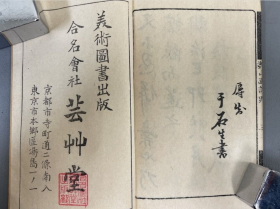 于石生書
美術圖書出版
合名會社 芸艸堂
京都市寺町通二條南入
東京市本郷區湯島一ノ一